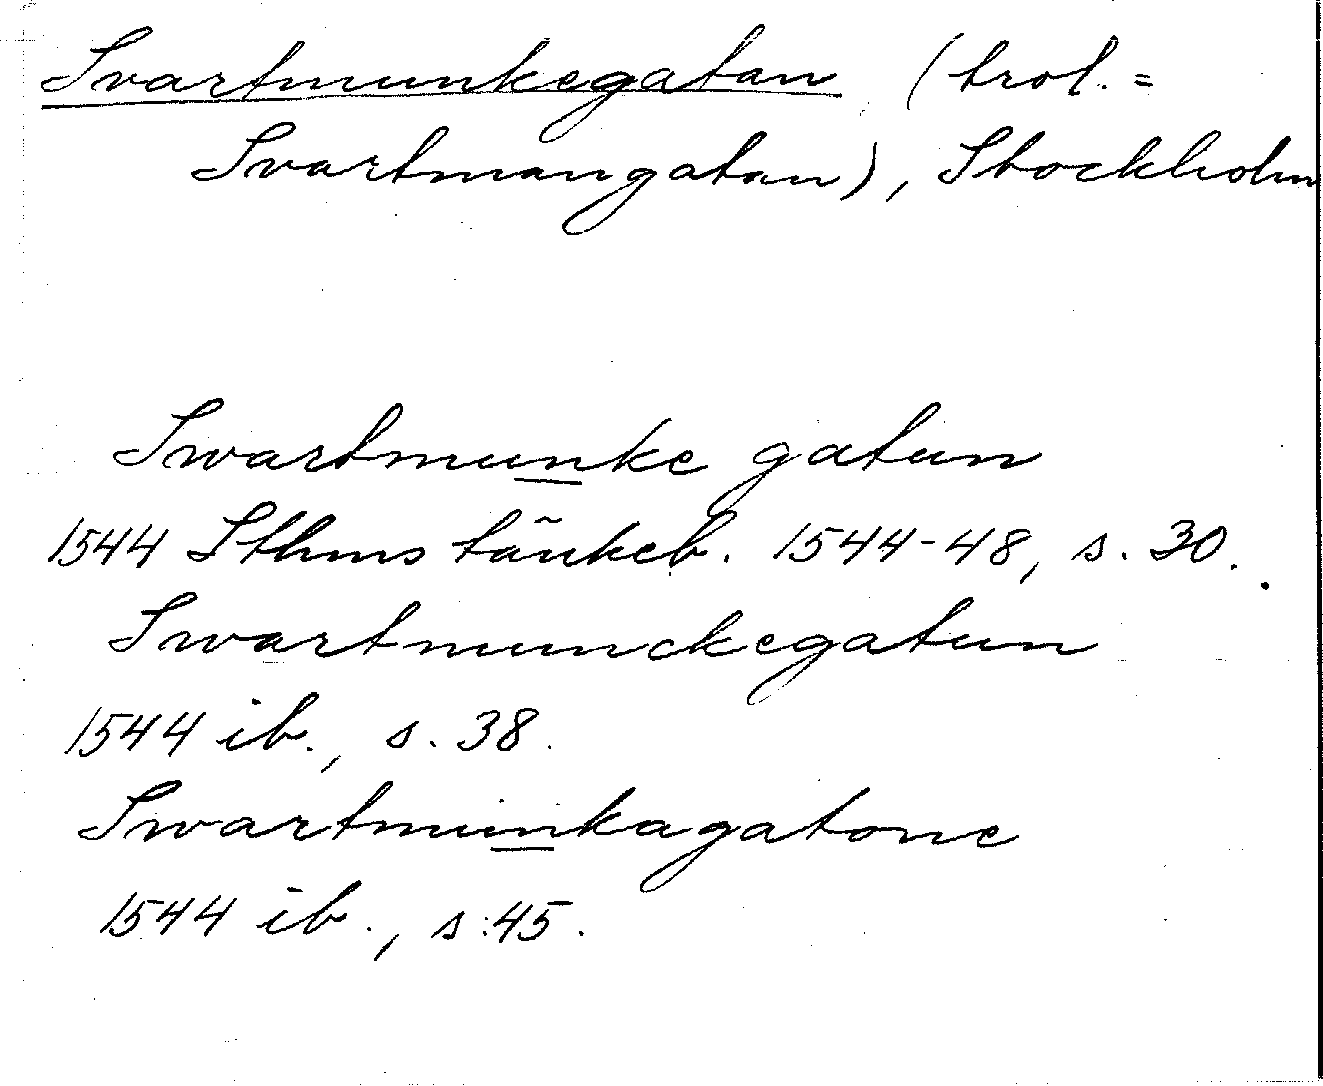 Svartmunkegatan (trol. =
Svartmangatan), Stockholm
Swartmunke gatun
1544 Sthms tänkeb. 1544-48, s. 30.
Swartmunckegatun
1544 ib., s. 38.
Swartmunkagatone
1544 ib., s. 45.